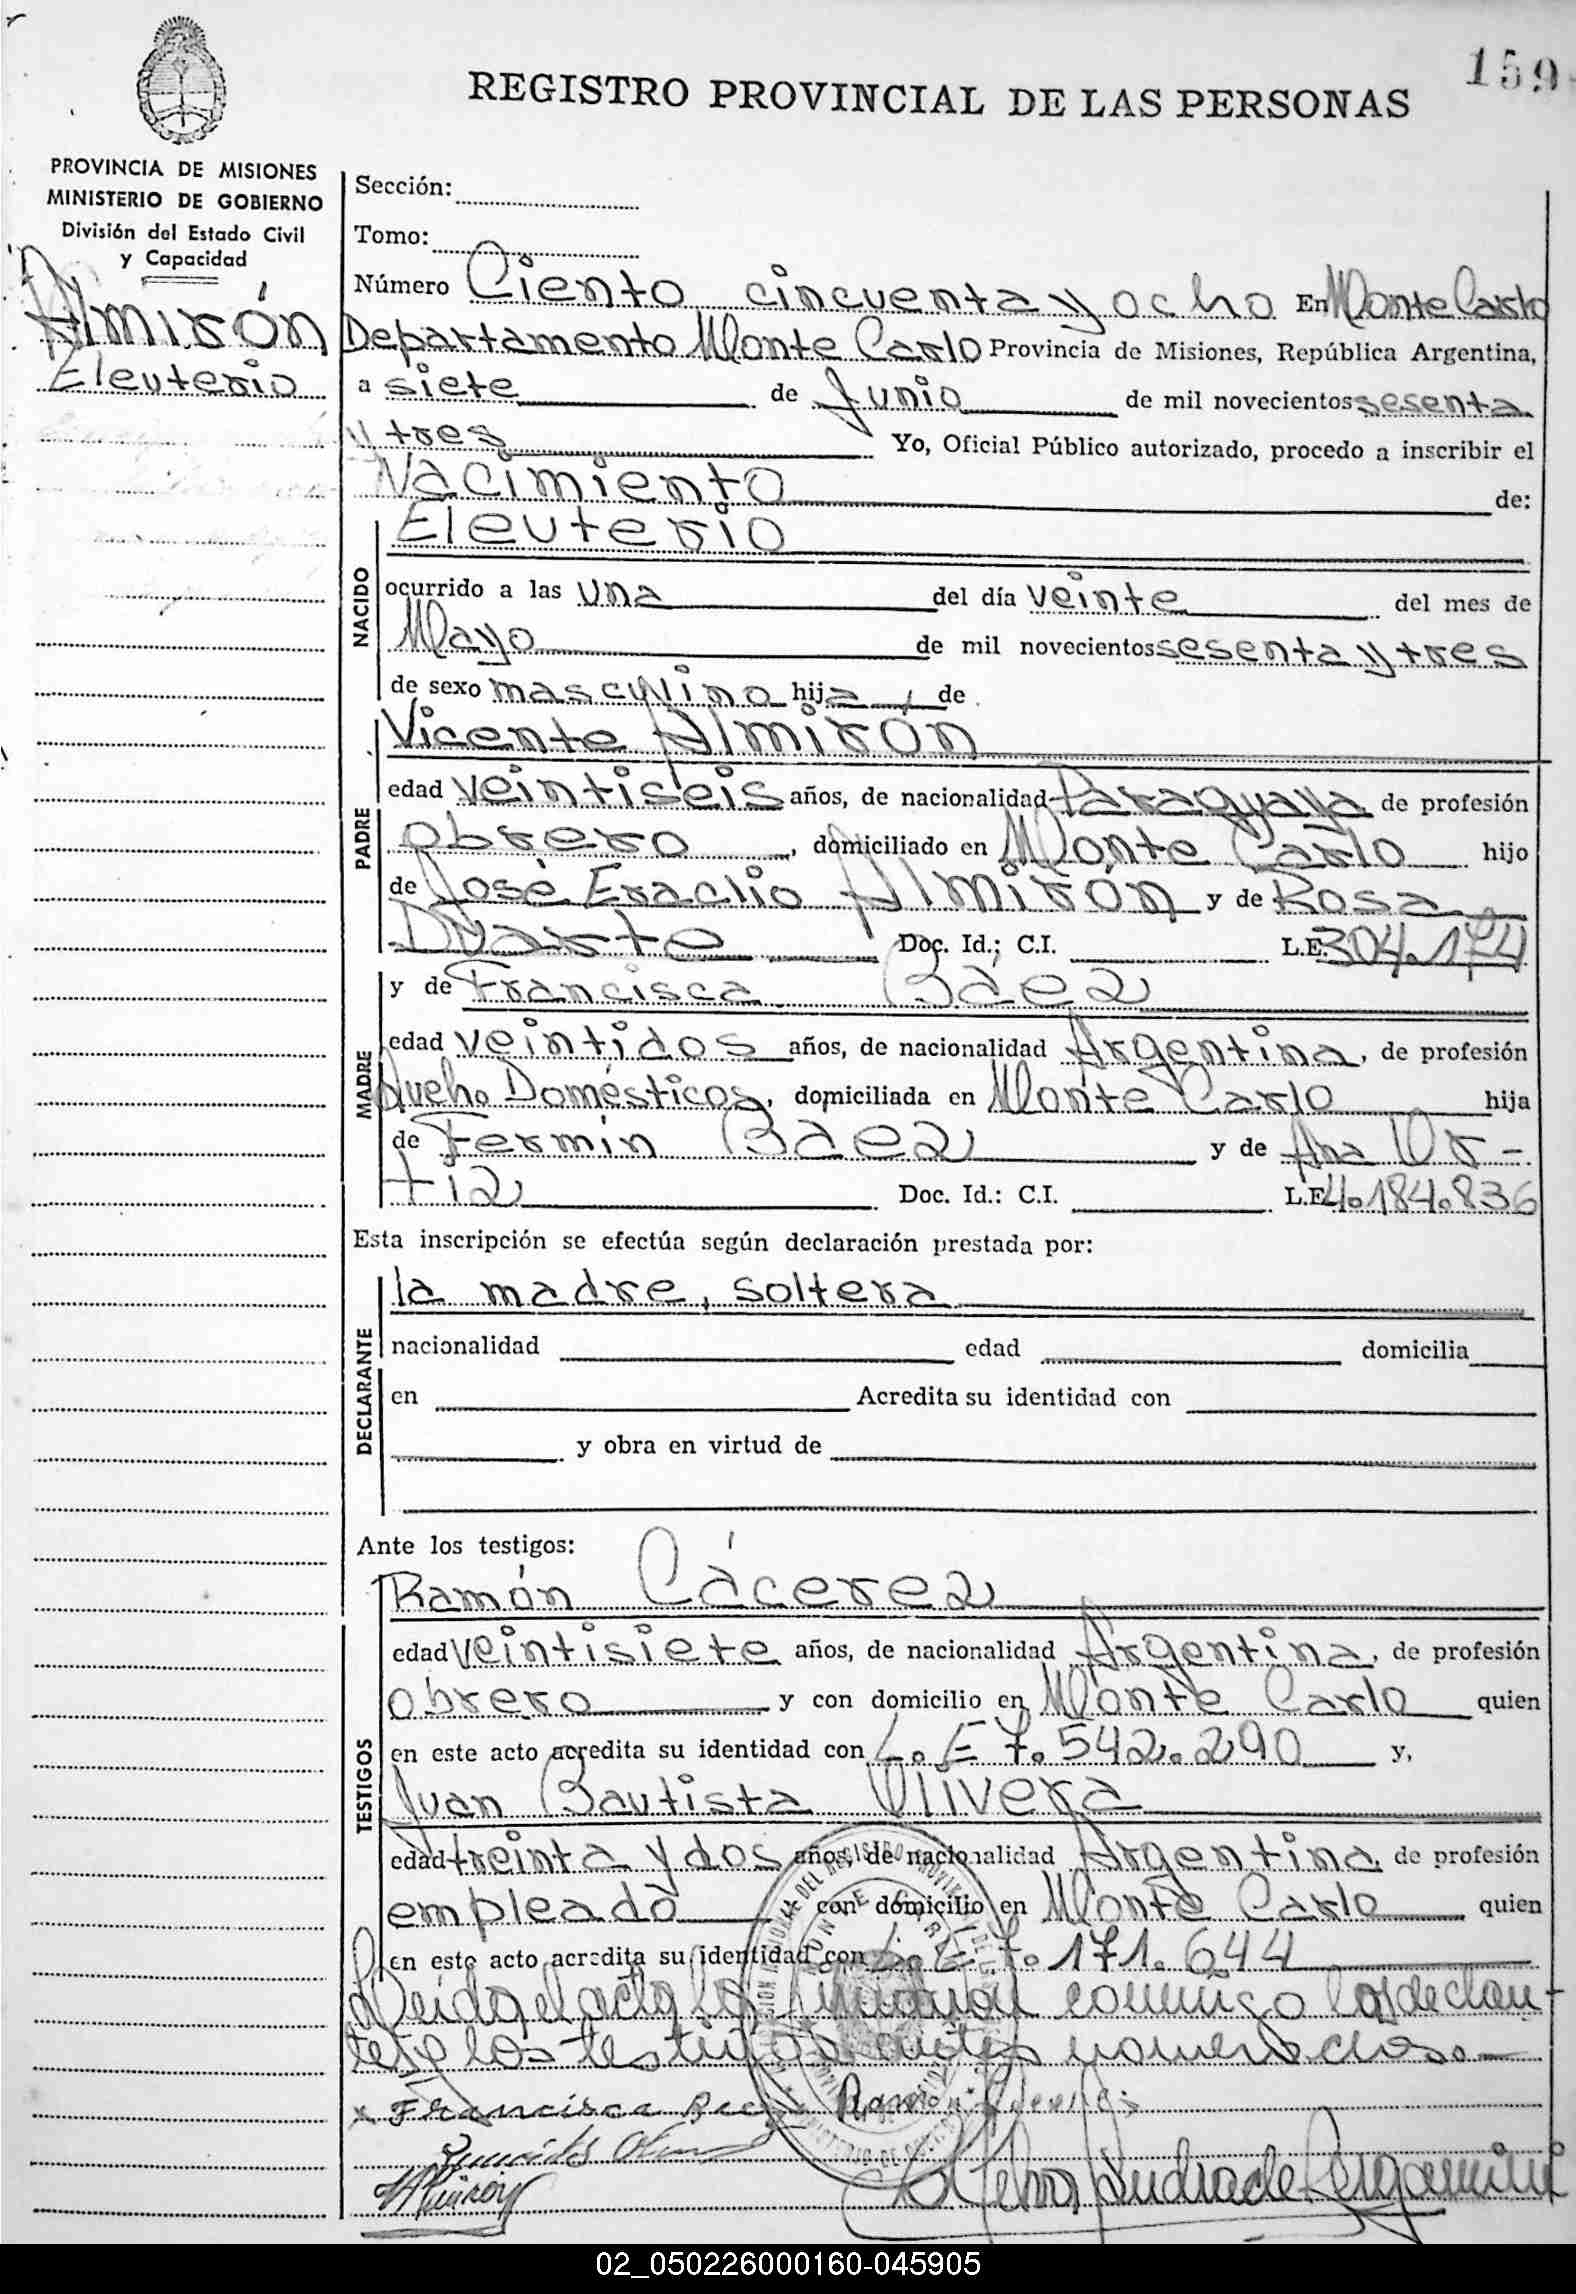 159
REGISTRO PROVINCIAL DE LAS PERSONAS
PROVINCIA DE MISIONES
MINISTERIO DE GOBIERNO
División del Estado Civil
y Capacidad
Almirón
Eleuterio
Sección:
Tomo:
Número Ciento cincuenta y ocho En Monte Carlo
Departamento Monte Carlo Provincia de Misiones, República Argentina,
a siete de Junio de mil novecientos sesenta
y tres Yo, Oficial Público autorizado, procedo a inscribir el
Nacimiento de:
NACIDO
Eleuterio
ocurrido a las una del día veinte del mes de
Mayo de mil novecientos sesenta y tres
de sexo masculino hijo de
PADRE
Vicente Almirón
edad veintiseis años, de nacionalidad Paraguaya de profesión
obrero, domiciliado en Monte Carlo hijo
de José Eraclio Almirón y de Rosa
Duarte Doc. Id.; C.I. L.E. 304.174
MADRE
y de Francisca Baez
edad veintidos años, de nacionalidad Argentina, de profesión
Queha. Domésticos, domiciliada en Monte Carlo hija
de Fermín Baez y de Ana Or-
tiz Doc. Id.: C.I. L.E. 4.184.836
Esta inscripción se efectúa según declaración prestada por:
DECLARANTE
la madre, soltera
nacionalidad edad domicilia
en Acredita su identidad con
y obra en virtud de
Ante los testigos:
TESTIGOS
Ramón Cácerez
edad veintisiete años, de nacionalidad Argentina, de profesión
obrero y con domicilio en Monte Carlo quien
en este acto acredita su identidad con L.E 7.542.290 y,
Juan Bautista Olivera
edad treinta y dos años, de nacionalidad Argentina, de profesión
empleado y con domicilio en Monte Carlo quien
en este acto acredita su identidad con L.E 7.171.644
Leida el acta la firman conmigo la declaran-
te y los testigos antes nomencdos.-
x Francisca Baez Ramón
Almirón
02_050226000160-045905